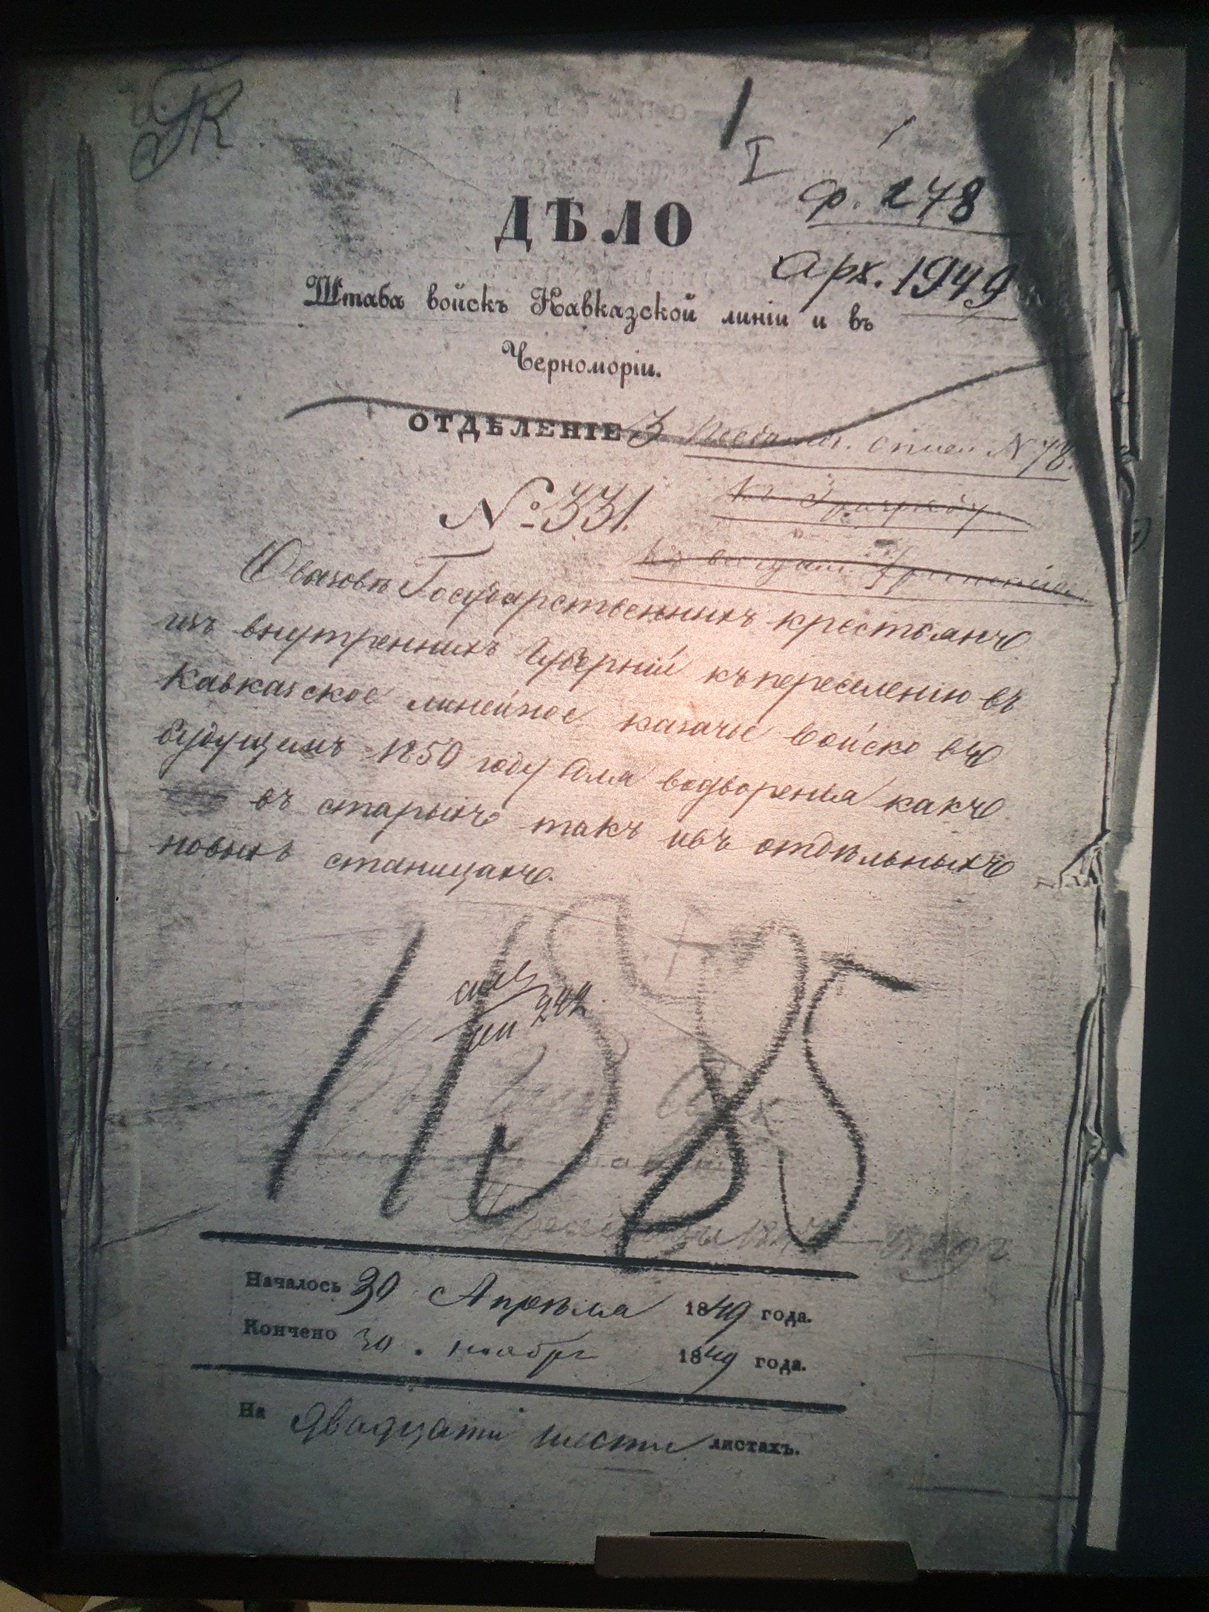 I
ф. 278
арх. 1949
ДѢЛО
Штаба войскъ Кавказской линіи и въ
Черноморіи.
ОТДѢЛЕНІЕ 3
опись № 78.
№ 331.
О вызовѣ Государственныхъ крестьянъ
изъ внутреннихъ Губерній къ переселенію въ
Кавказское линейное казачье войско въ
будущемъ 1850 году для водворенія какъ
въ старыхъ такъ и въ отдѣльныхъ
новыхъ станицахъ.
242
Началось 30 Апрѣля 1849 года.
Кончено 30. ноябр 1849 года.
На двадцати шести листахъ.